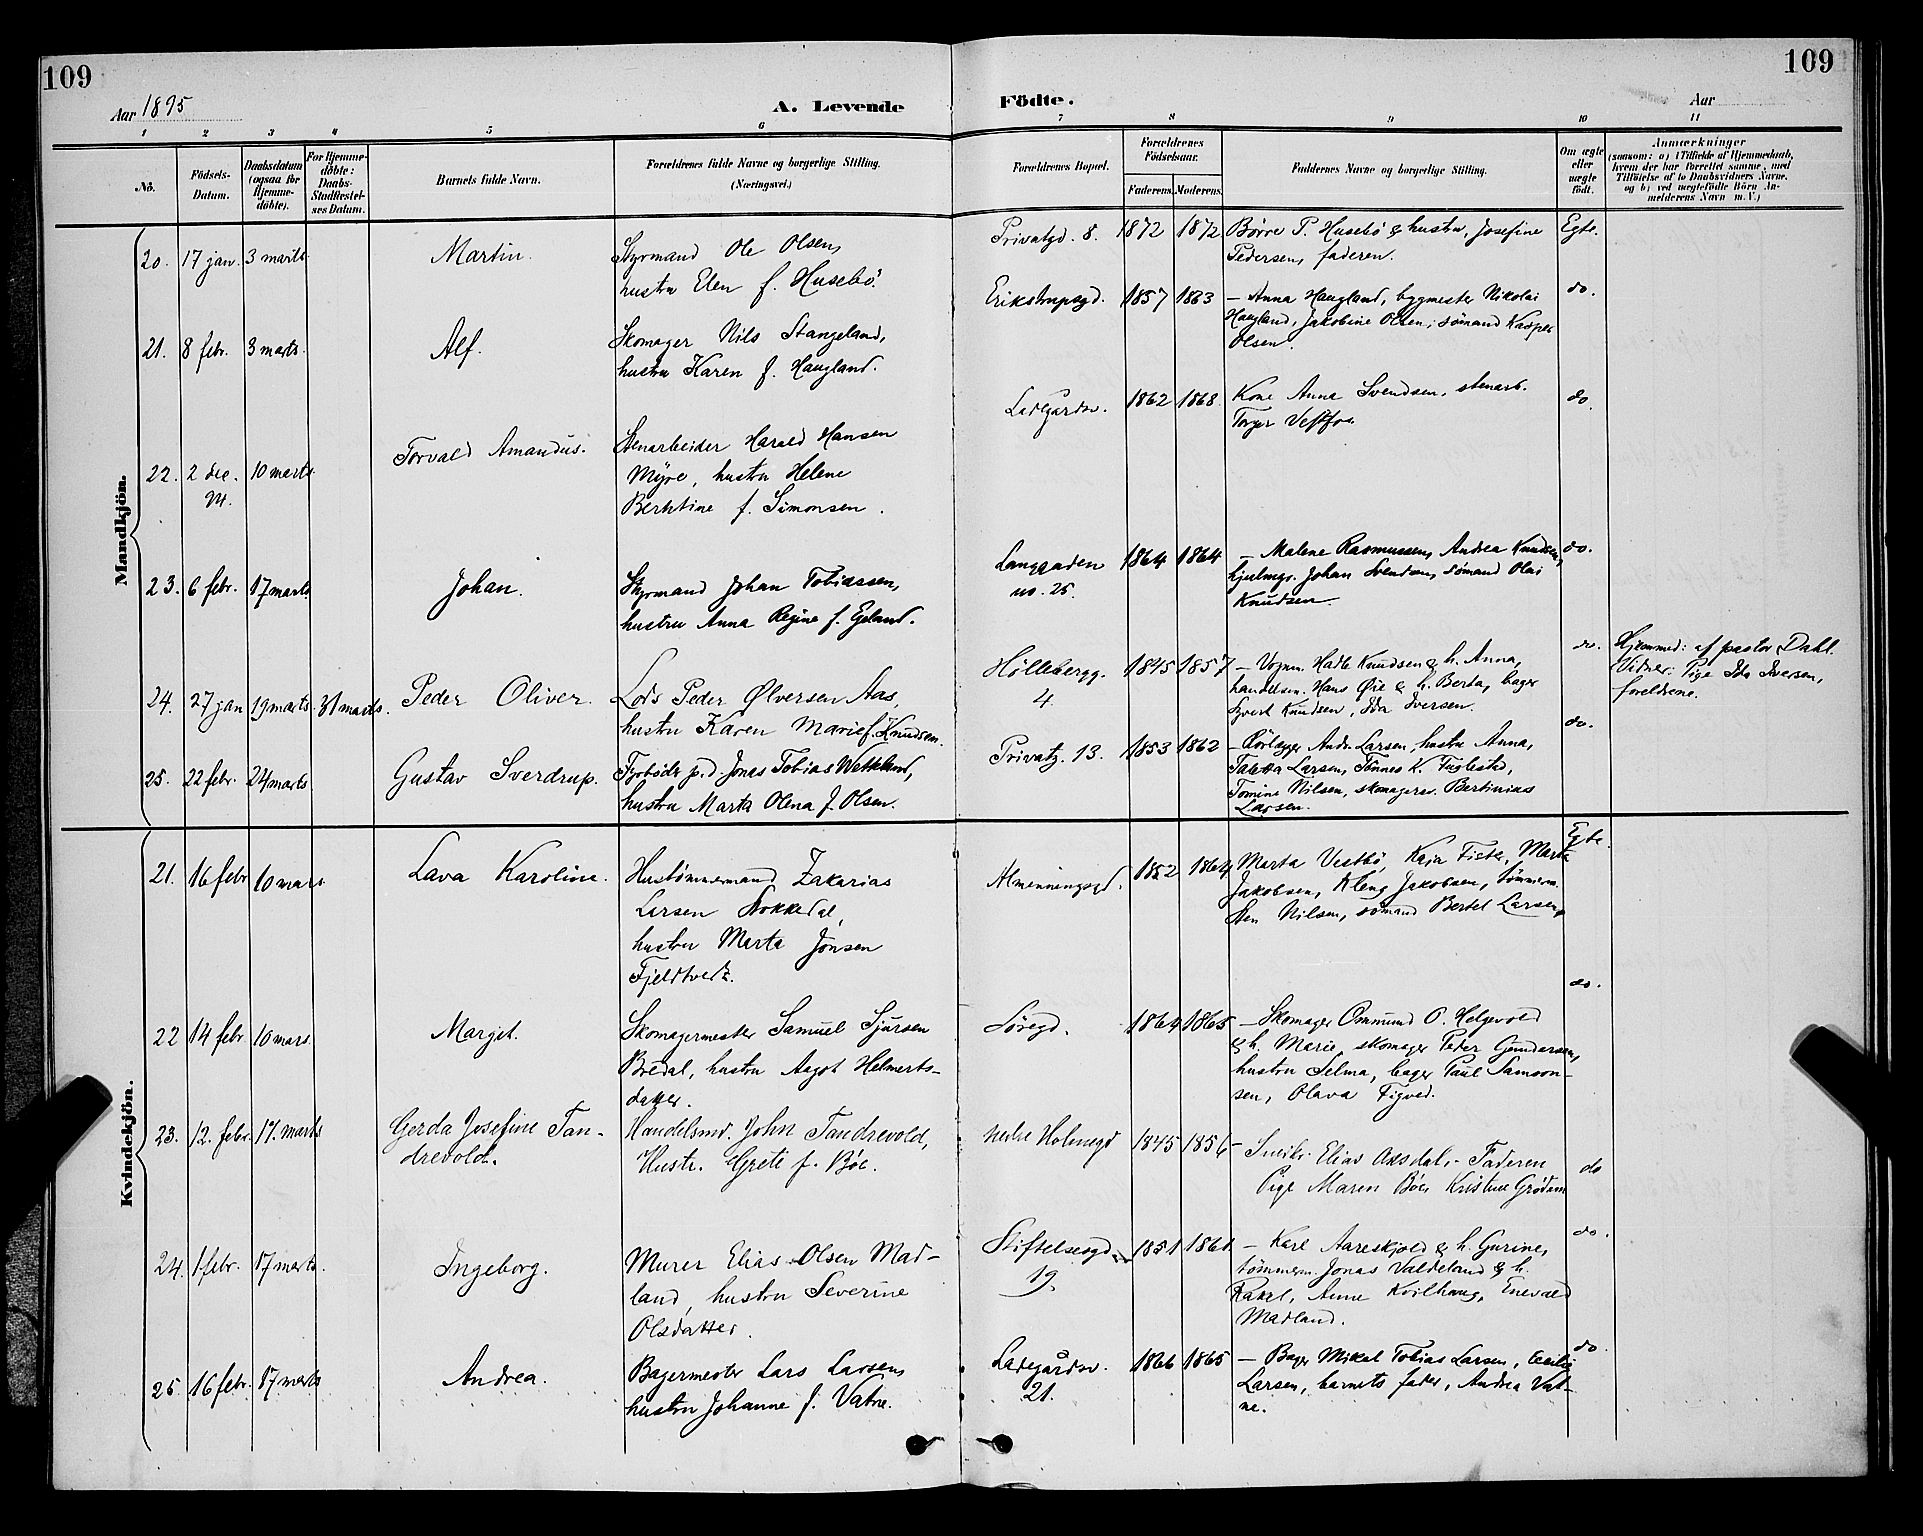 109
109
Aar 1895
A. Levende
Födte.
Aar
1 2 3 4 5 6 7 8 9 10 11
No.
Födsels-
Datum.
Daabsdatum
(ogsaa for
Hjemme-
döbte).
For Hjemme-
döbte:
Daabs-
Stadfæstel-
ses Datum.
Barnets fulde Navn.
Forældrenes fulde Navne og borgerlige Stilling.
(Næringsvei.)
Forældrenes Bopæl.
Forældrenes
Födselsaar.
Faderens.
Moderens.
Faddernes Navne og borgerlige Stilling.
Om ægte
eller
uægte
født.
Anmærkninger
(saasom: a) i Tilfælde af Hjemmedaab,
hvem der har forrettet samme, med
Tilföielse af to Daabsvidners Navne,
og b) ved uægtefödte Börn An-
melderens Navn m. V.)
Mandkjön.
20. 17 jan. 3 marts
Martin.
Styrmand Ole Olsen,
hustru Elen f. Husebö.
Privatgd. 8. 1872 1872
Börre P. Husebö & hustru, Josefine
Pedersen, faderen.
Egte.
21. 8 febr. 3 marts.
Alf.
Skomager Nils Stangeland,
hustru Karen f. Haugland.
Erikstrupsgd. 1857 1863
— Anna Haugland, bygmester Nikolai
Haugland, Jakobine Olsen, sömand Kasper
Olsen.
do.
22. 2 dec. 10 marts.
94.
Torvald Amandus.
Stenarbeider Harald Hansen
Myre, hustru Helene
Berhtine f. Simonsen.
Ladegårdsv. 1862 1868.
Kone Anna Svendsen, stenarb.
Torger
do.
23. 6 febr. 17 marts.
Johan.
Styrmand Johan Tobiassen,
hustru Anna Regine f. Egeland.
Langgaden
no. 25.
1864 1864
— Malene Rasmussen, Andrea Knudsen,
hjulmgr. Johan Svendsen, sömand Olai
Knudsen.
do.
24. 27 jan 19 marts 31 marts.
Peder Oliver.
Lods Peder Ølversen Aas,
hustru Karen Marie f. Knudsen.
Höllebergg.
4.
1845 1857
— Vognm. Hadle Knudsen & h. Anna,
handelsm. Hans Øie & h. Berta, bager
Sjvert Knudsen, Ida Iversen.
do.
Hjemmed: af pastor Dahl.
Vidner: Pige Ida Iversen,
foreldrene.
25. 22 febr. 24 marts
Gustav Sverdrup.
Fyrböder p.d. Jonas Tobias
hustru Marta Olena f. Olsen.
Privatg. 13. 1853 1862
— Rörlægger Andr. Larsen, hustru Anna,
Taletta Larsen, Tönnes K. Fuglestad,
Tomine Nilsen, skomagersv. Bertinius
Larsen.
do.
Kvindekjön.
21. 16 febr 10 mars
Lava Karoline.
Hustömmermand Zakarias
Larsen Stokkedal,
hustru Marta Jonsen
Fjeldtvedt.
Almenningsgd. 1852 1864
Marta Vestbö, Kaja Fister, Marta
Jakobsen, Kleng Jakobsen, tömmerm.
Sten Nilsen, sömand Bertel Larsen,
Egte.
22 14 febr. 10 mars.
Margit.
Skomagermester Samuel Sjursen
Bredal, hustru Aagot Helmerts-
datter.
Söregd. 1864 1865
— Skomager Ommund O. Helgevold
& h. Marie, skomager Peder Gundersen,
hustru Selma, bager Paul Samson-
sen, Olava Tigved.
do.
23. 12. febr. 17. marts
Gerda Josefine Tan-
drevold.
Handelsmd. John Tandrevold,
Hustr. Grete f. Böe.
Nedre Holmegd 1845 1856
— Snedkr. Elias Aksdal, Faderen
Pige Maren Böe, Kristine Grödem
do
24. 1 febr. 17 marts.
Ingeborg.
Murer Elias Olsen Mad-
land, hustru Severine
Olsdatter.
Stiftelsesgd.
19.
1851 1861.
— Karl Aareskjold & h. Gurine,
tömmerm. Jonas Valdeland & h.
Rakel, Anne Kvilhaug, Enevald
Madland.
do.
25. 16 febr. 17 marts
Andrea.
Bagermester Lars Larsen,
hustru Johanne f. Vatne.
Ladegårdsv.
21.
1866 1865
— Bager Mikal Tobias Larsen, Cecilie
Larsen, barnets fader, Andrea Vat-
ne.
do.